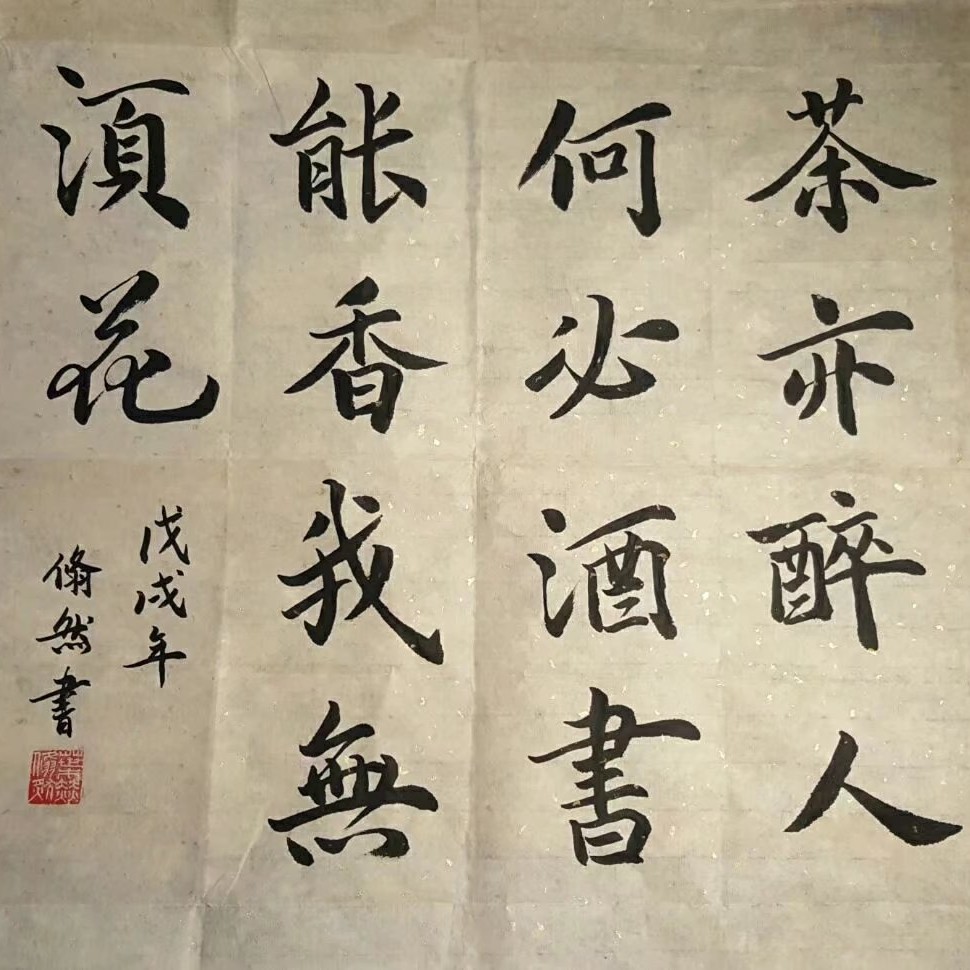 茶亦醉人
何必酒書
能香我無
湏花
戊戌年
翛然書